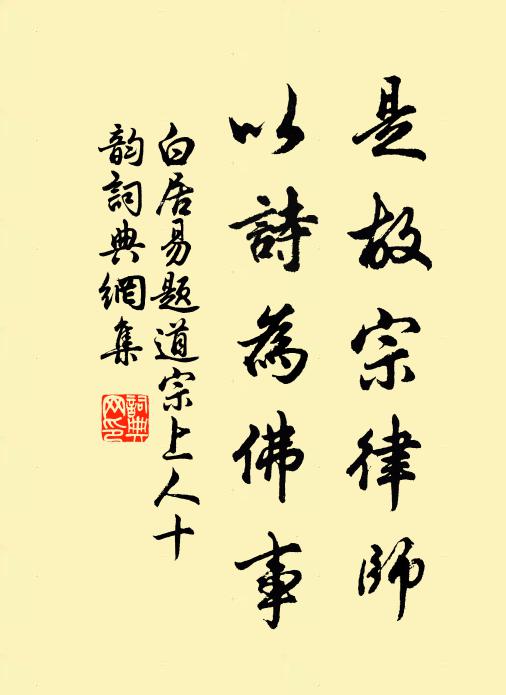 是故宗律師
以詩為佛事
白居易题道宗上人十
韵詞典網集
詞典網印